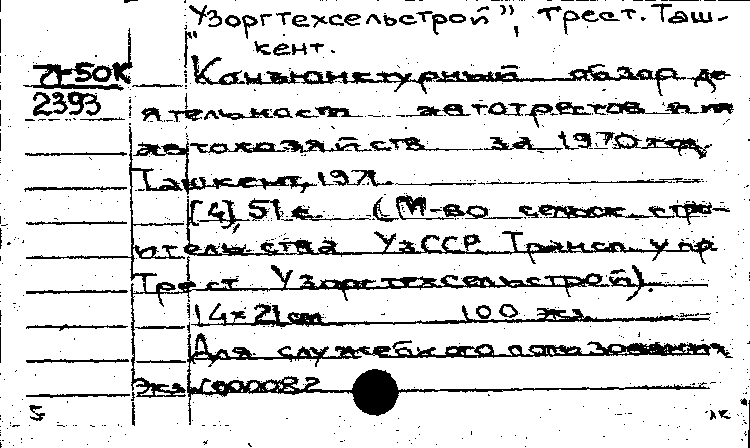 "Узоргтехсельстрой", трест. Таш-
кент.
71-50К
2393
Конъюнктурный обзор де
ятельности автотрестов и
автохозяйств за 1970 год.
Ташкент, 1971.
[4], 51 с. (М-во сельск. стро-
ительства УзССР. Трансп. упр
Трест Узоргтехсельстрой).
14×21 cm 100 экз.
Для служебного пользования
Экз. 000082